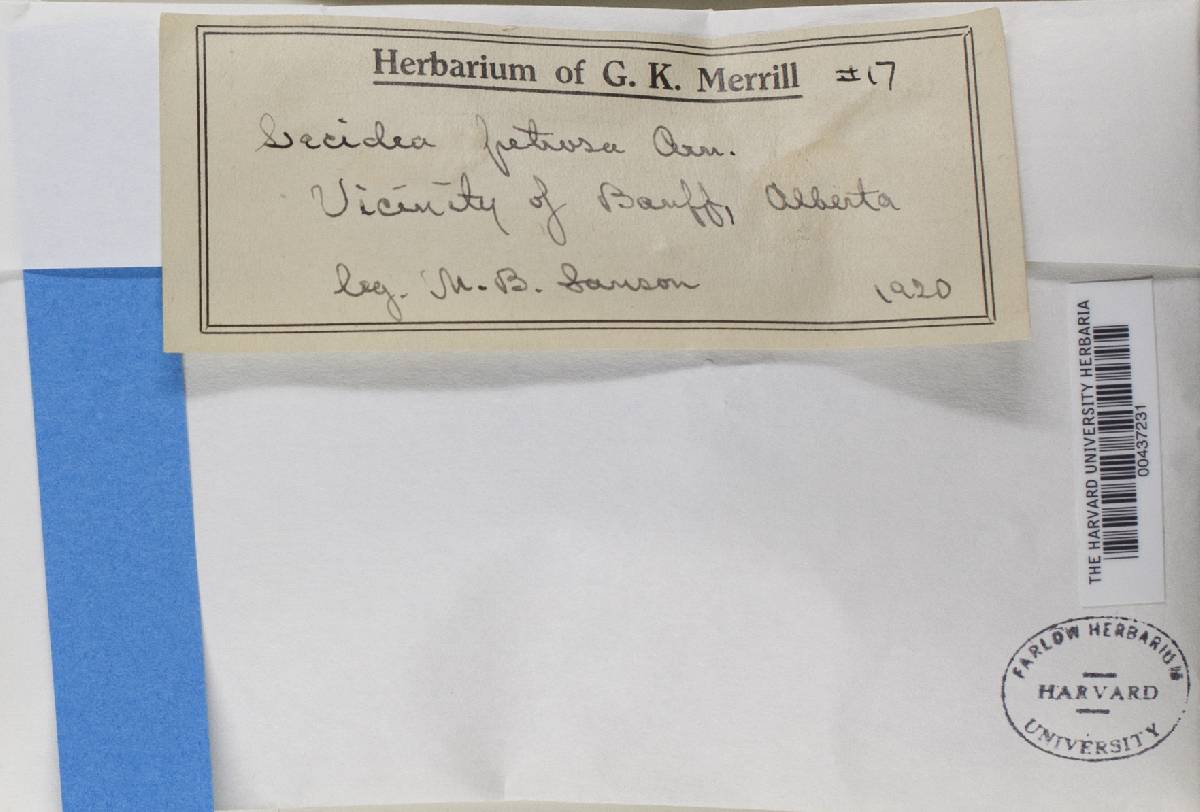 Herbarium of G. K. Merrill #17
Lecidea petrosa Arn.
Vicinity of Banff, Alberta
leg. N. B. Sanson 1920
THE HARVARD UNIVERSITY HERBARIA
00437231
FARLOW HERBARIUM
HARVARD
UNIVERSITY